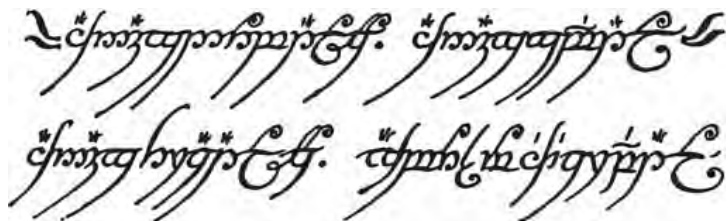 Ash nazg durbatulûk, ash nazg gimbatul,
ash nazg thrakatulûk, agh burzum-ishi krimpatul.